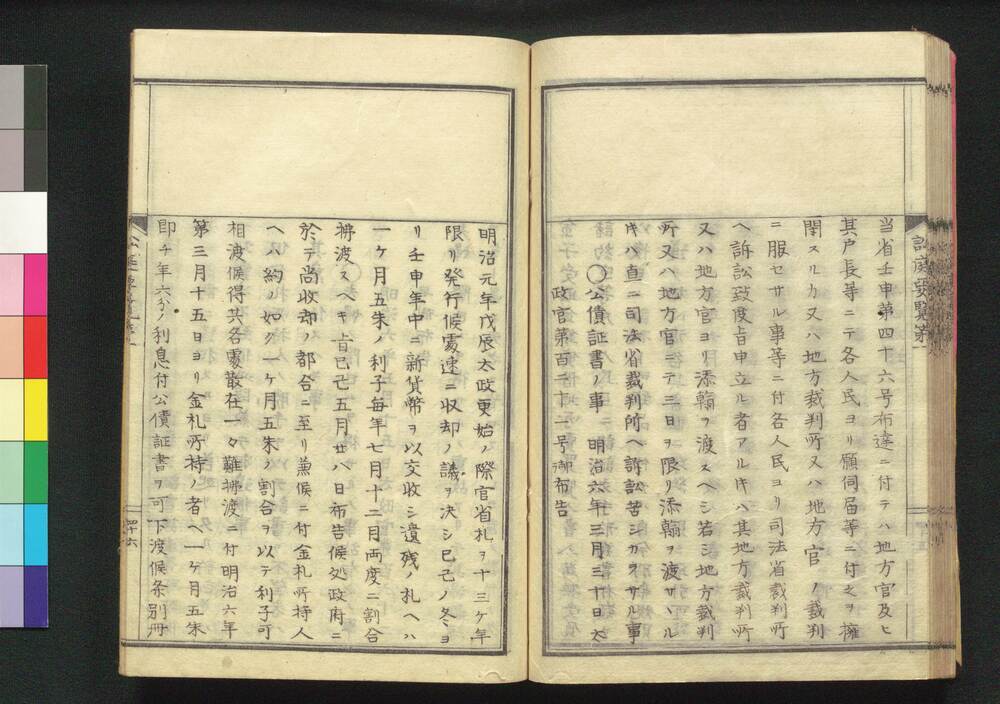 当省壬申第四十六号布達ニ付テハ地方官及ヒ
其戸長等ニテ各人民ヨリ願伺届等ニ付之ヲ擁
閉スルカ又ハ地方裁判所又ハ地方官ノ裁判
ニ服セサル事等ニ付各人民ヨリ司法省裁判所
ヘ訴訟致度旨申立ル者アル𪜈ハ其地方裁判所
又ハ地方官ヨリ添翰ヲ渡スヘシ若シ地方裁判
所又ハ地方官ニテ三日ヲ限リ添翰ヲ渡サヽル
𪜈ハ直ニ司法省裁判所ヘ訴訟苦シカラサル事
〇公債証書ノ事 明治六年三月三十日太
政官第百二十一号御布告
明治元年戊辰太政更始ノ際官省札ヲ十三ケ年
限リ発行候處速ニ収却ノ議ヲ決シ己巳ノ冬ヨ
リ壬申年中ニ新貨幣ヲ以交収シ遺残ノ札ヘハ
一ケ月五朱ノ利子毎年七月十二月両度ニ割合
拂渡スヘキ旨己巳五月廿八日布告候処政府ニ
於テ尚収却ノ都合ニ至リ兼候ニ付金札所持人
ヘハ約ノ如ク一ケ月五朱ノ割合ヲ以テ利子可
相渡候得共各處散在一々難拂渡ニ付明治六年
第三月十五日ヨリ金札所持ノ者ヘ一ケ月五朱
即チ年六分ノ利息付公債証書ヲ可下渡候条別冊
四十六